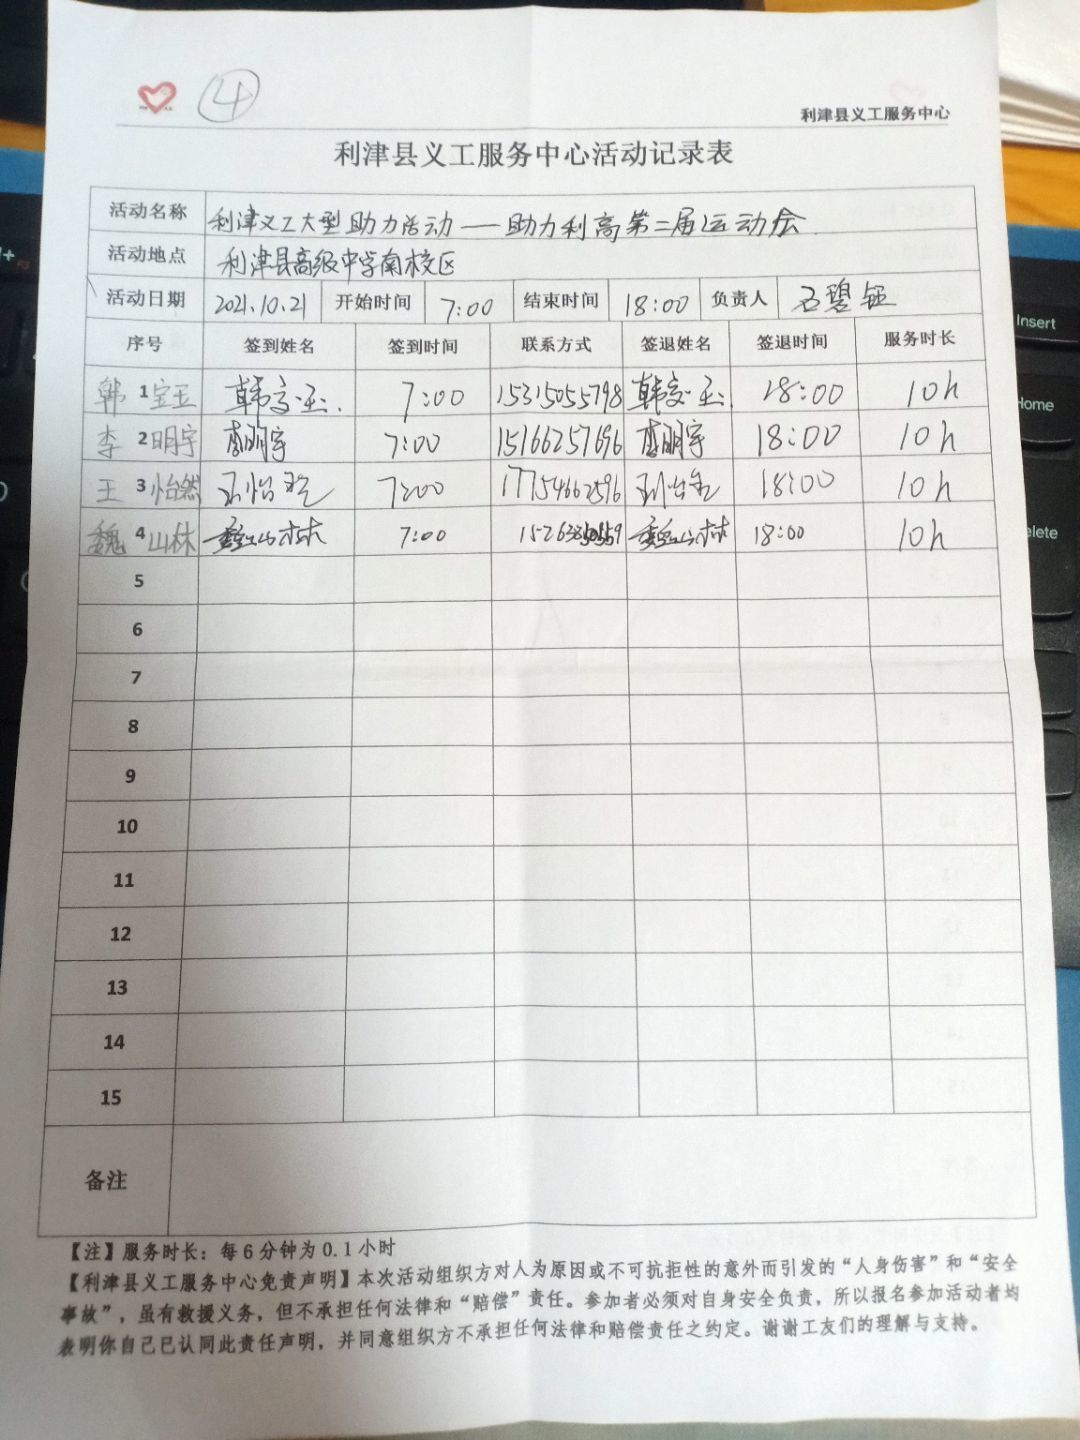 ④
利津县义工服务中心
利津县义工服务中心活动记录表
活动名称 利津义工大型助力活动——助力利高第二届运动会
活动地点 利津县高级中学南校区
活动日期 2021.10.21 开始时间 7:00 结束时间 18:00 负责人 石碧钰
序号 签到姓名 签到时间 联系方式 签退姓名 签退时间 服务时长
韩 1 宝玉 韩宝玉 7:00 15315055798 韩宝玉 18:00 10h
李 2 明宇 李明宇 7:00 15166257696 李明宇 18:00 10h
王 3 怡然 王怡然 7:00 17754662596 王怡然 18:00 10h
魏 4 山林 魏山林 7:00 魏山林 18:00 10h
5
6
7
8
9
10
11
12
13
14
15
备注
【注】服务时长：每6分钟为0.1小时
【利津县义工服务中心免责声明】本次活动组织方对人为原因或不可抗拒性的意外而引发的“人身伤害”和“安全
事故”，虽有救援义务，但不承担任何法律和“赔偿”责任。参加者必须对自身安全负责，所以报名参加活动者均
表明你自己已认同此责任声明，并同意组织方不承担任何法律和赔偿责任之约定。谢谢工友们的理解与支持。
Insert
Home
elete